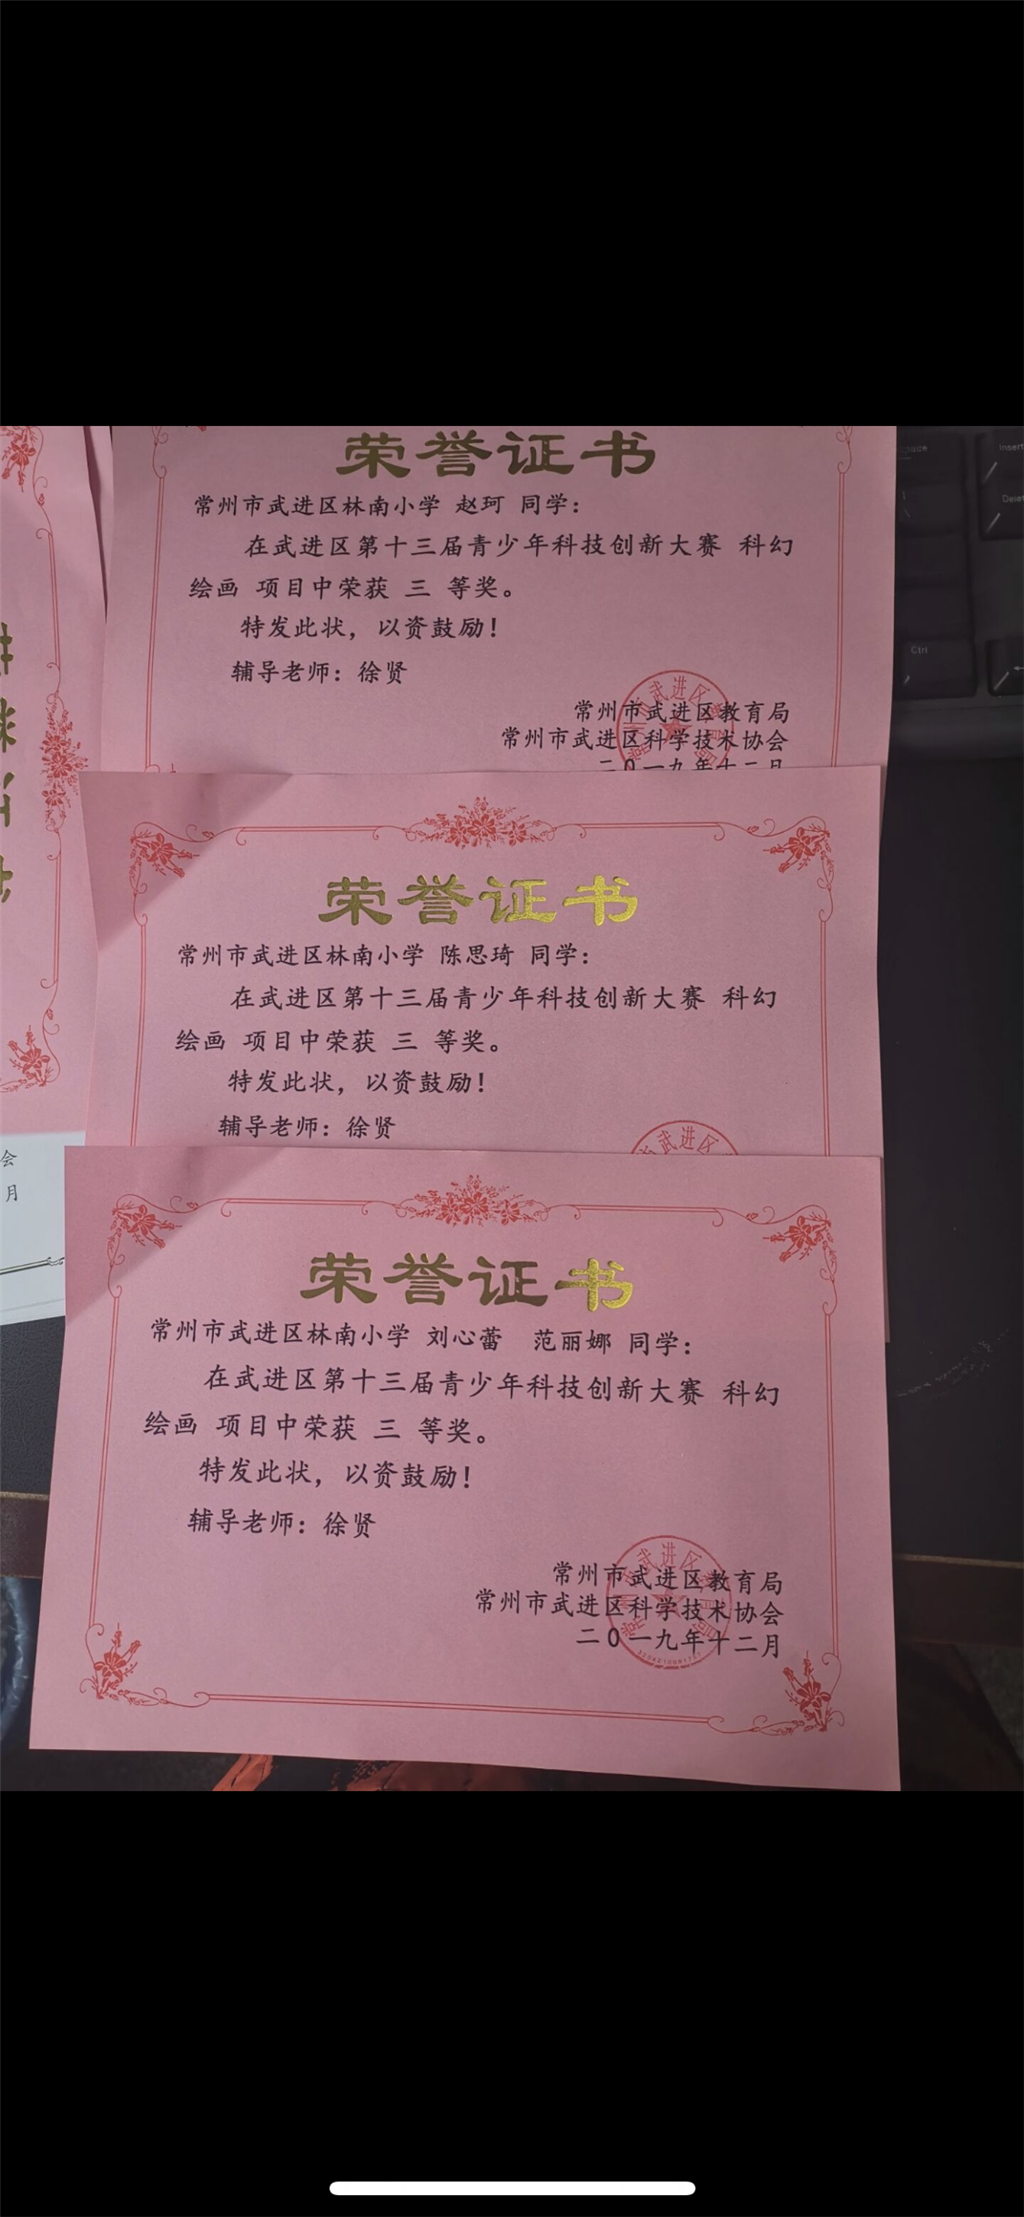 荣誉证书
常州市武进区林南小学 赵珂 同学：
在武进区第十三届青少年科技创新大赛 科幻
绘画 项目中荣获 三 等奖。
特发此状，以资鼓励！
辅导老师：徐贤
常州市武进区教育局
常州市武进区科学技术协会
二0一九年十二月
荣誉证书
常州市武进区林南小学 陈思琦 同学：
在武进区第十三届青少年科技创新大赛 科幻
绘画 项目中荣获 三 等奖。
特发此状，以资鼓励！
辅导老师：徐贤
市武进区
荣誉证书
常州市武进区林南小学 刘心蕾 范丽娜 同学：
在武进区第十三届青少年科技创新大赛 科幻
绘画 项目中荣获 三 等奖。
特发此状，以资鼓励！
辅导老师：徐贤
常州市武进区教育局
常州市武进区科学技术协会
二0一九年十二月
会
月
Insert
Ctrl